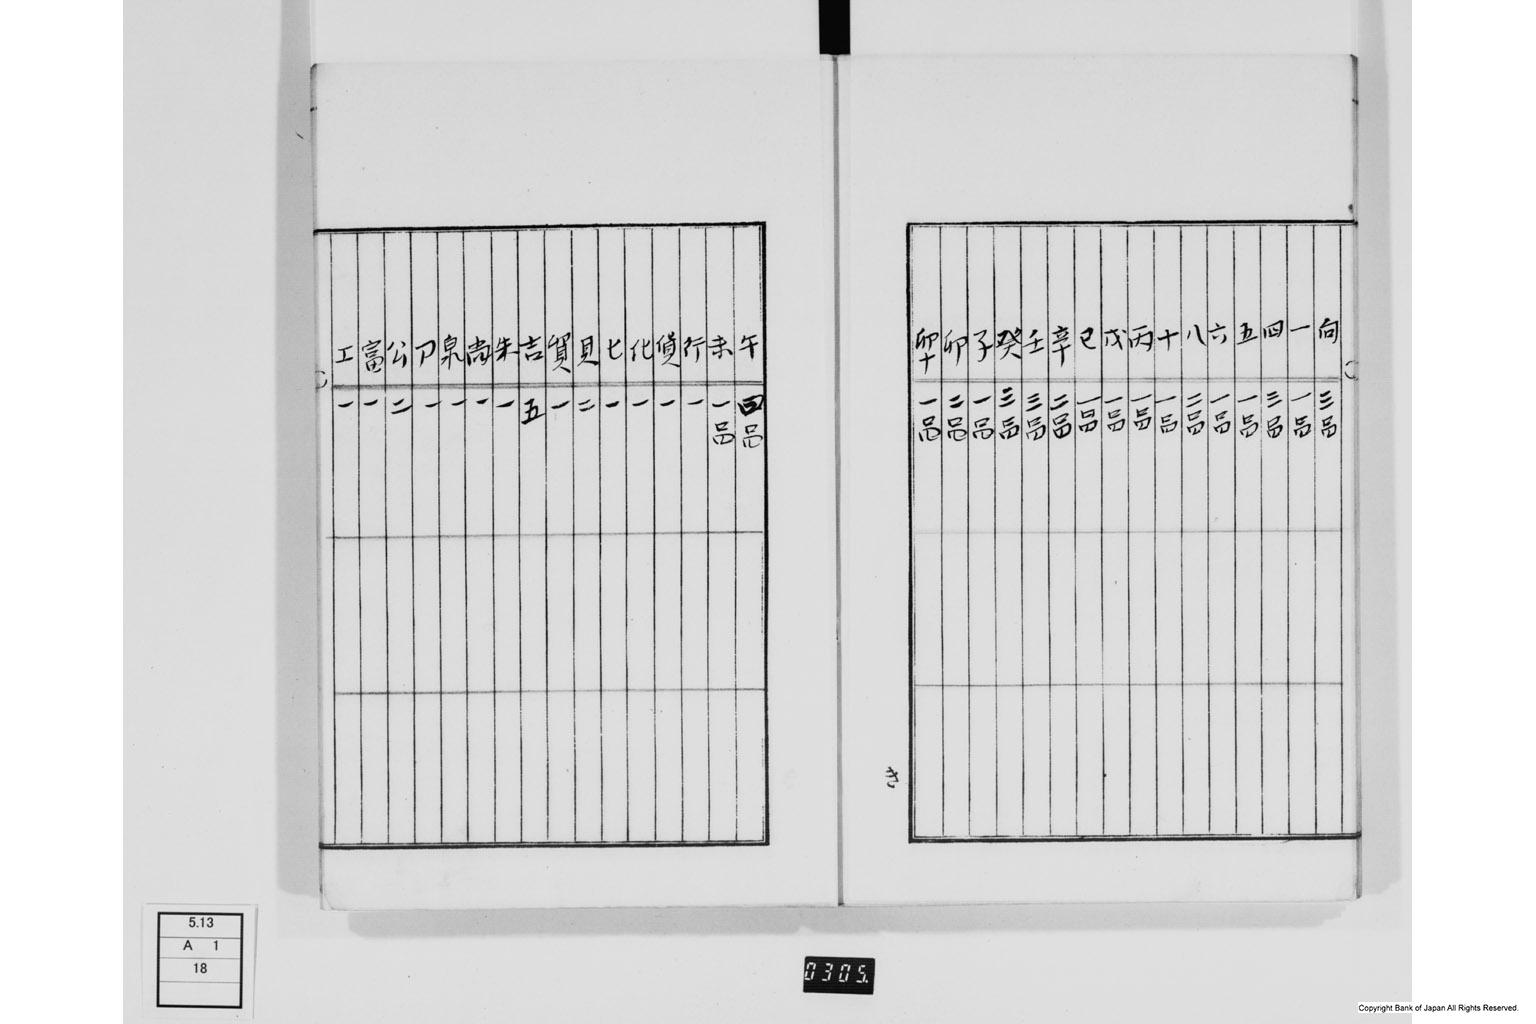 向 三品
一 一品
四 三品
五 一品
六 一品
八 二品
十 一品
丙 一品
戊 一品
已 一品
辛 二品
壬 三品
癸 三品
子 一品
卯 二品
卯十 一品
午 四品
未 一品
行 一
貨 一
化 一
七 一
貝 二
貿 一
吉 五
朱 一
尚 一
泉 一
卩 一
公 二
富 一
工 一
5.13
A 1
18
0305.
Copyright Bank of Japan All Rights Reserved.